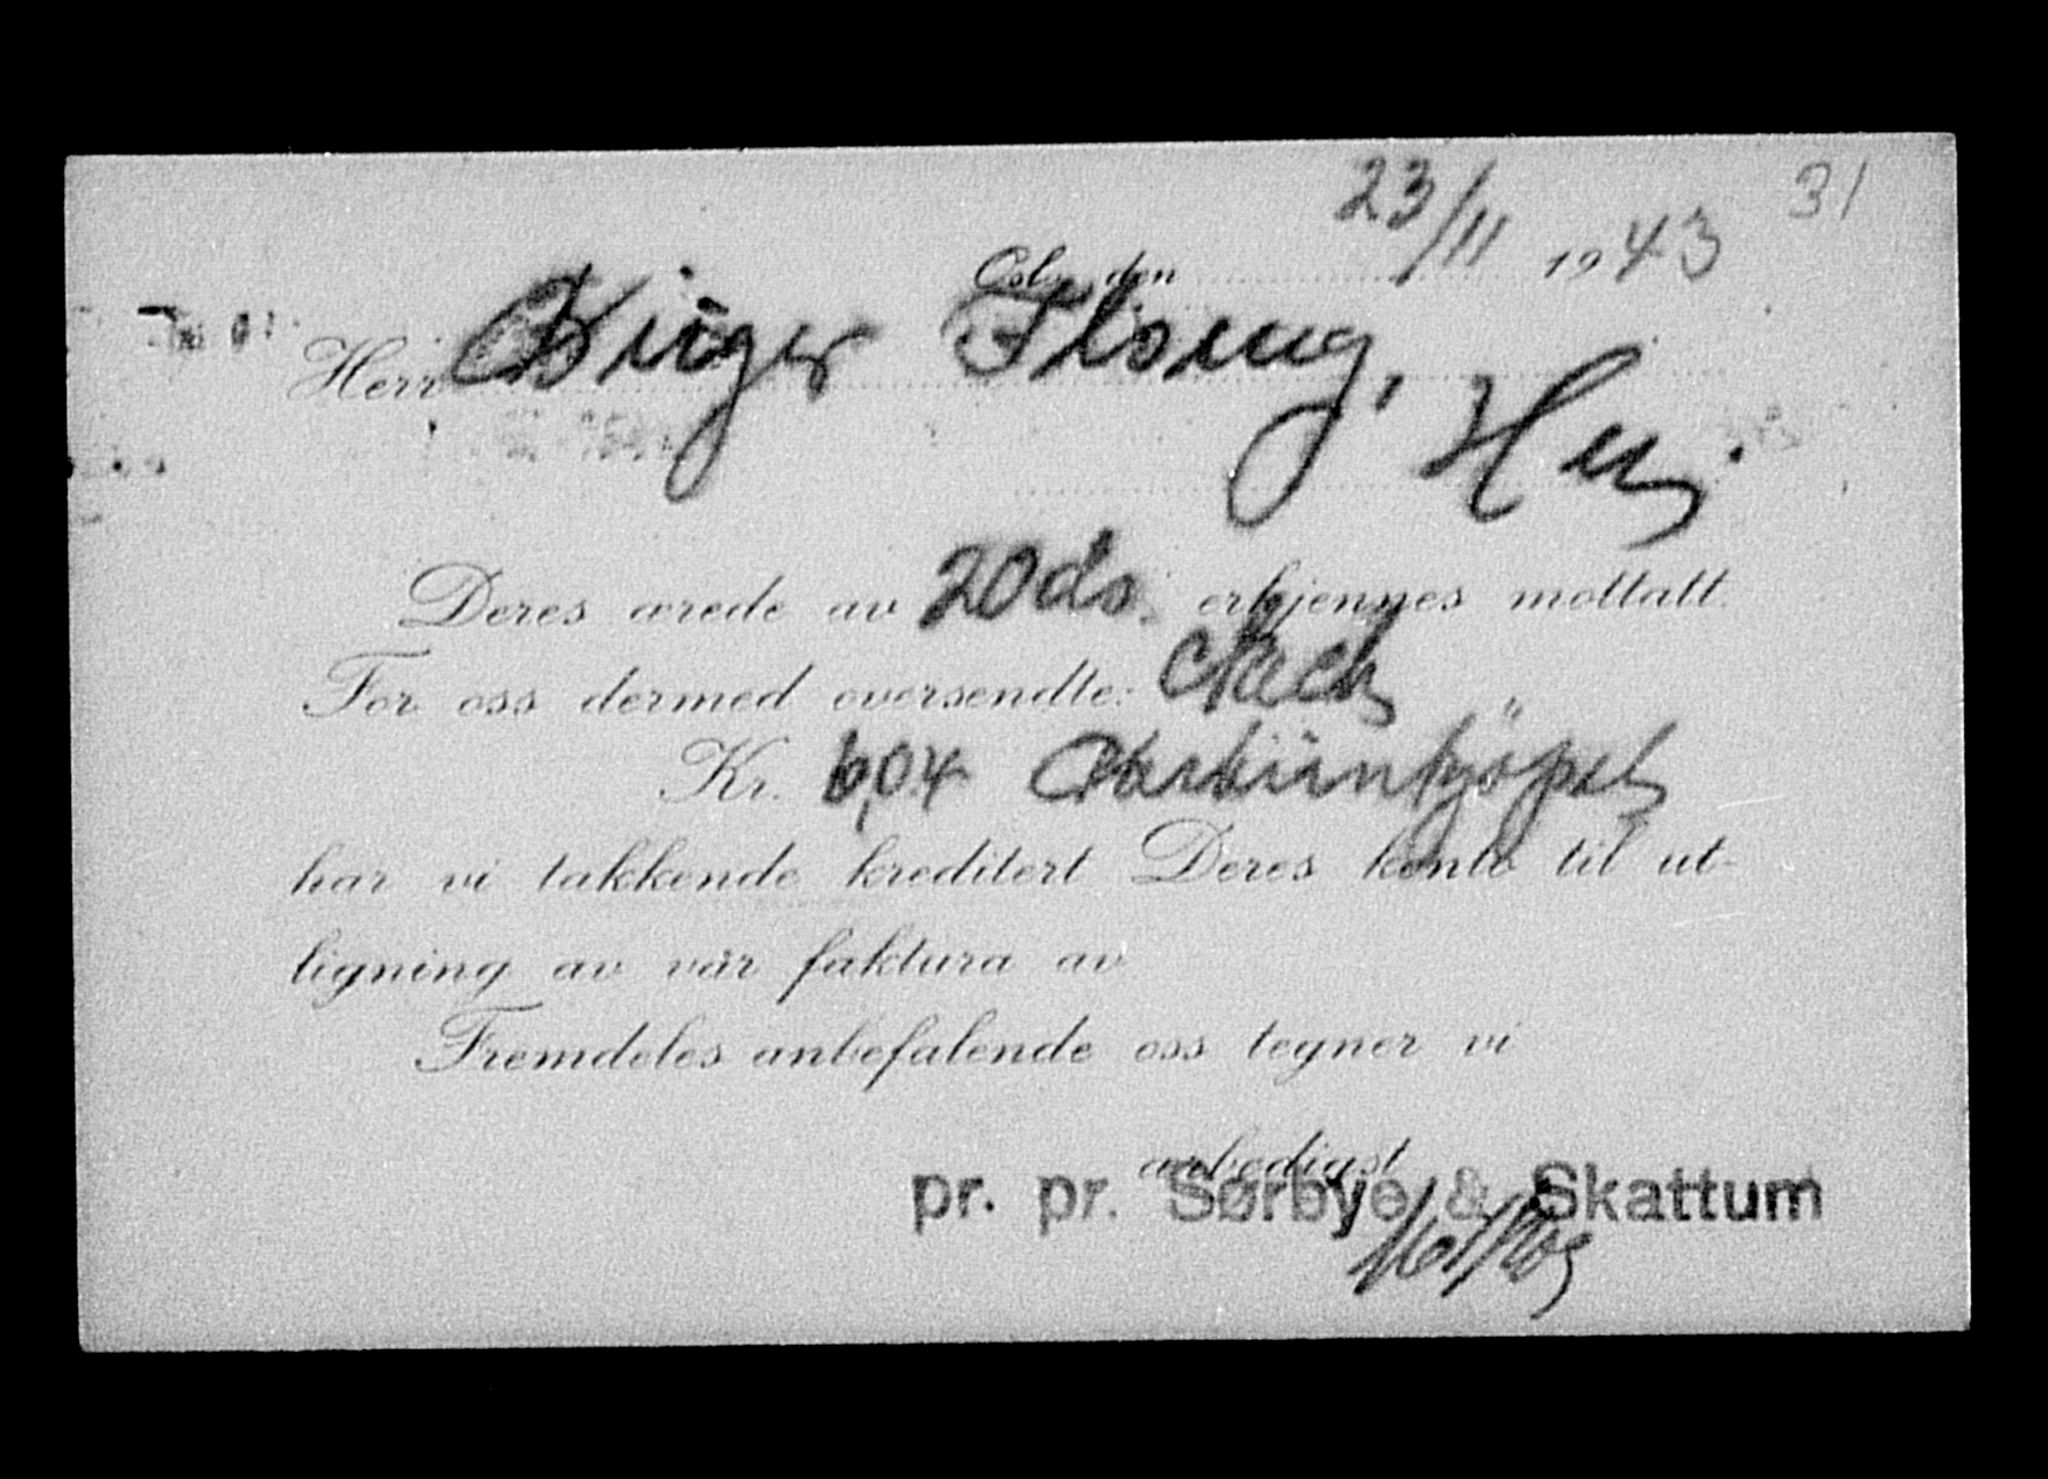 23/11 31
Oslo, den 1943
Herr Birger
Deres ærede av 20 ds. erkjennes mottatt.
For oss dermed oversendte:
Kr. 6,04
har vi takkende kreditert Deres konto til ut-
ligning av vår faktura av
Fremdeles anbefalende oss tegner vi
ærbødigst
pr. pr. Sørbye & Skattum